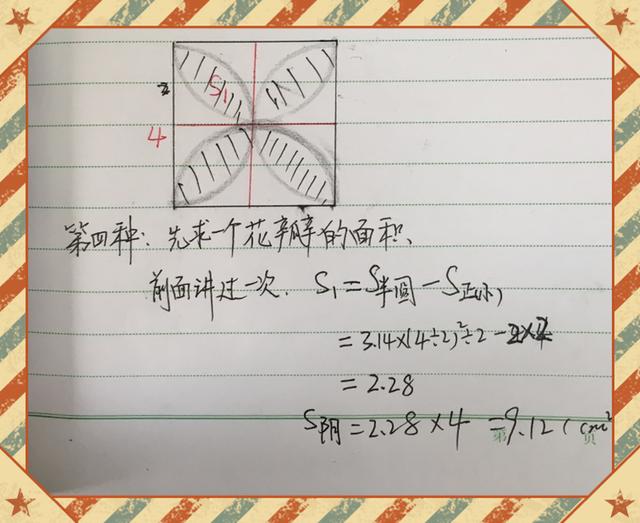 S₁
4
第四种: 先求一个花瓣的面积、
前面讲过一次. S₁=S半圆-S正(小)
=3.14×(4÷2)²÷2-2×2
=2.28
S阴=2.28×4=9.12(cm²
第 页